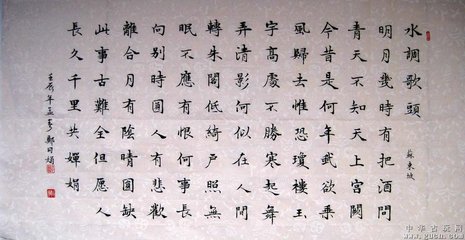 水調歌頭
蘇東坡
明月幾時有把酒問
青天不知天上宮闕
今昔是何年我欲乘
風歸去惟恐瓊樓玉
宇高處不勝寒起舞
弄清影何似在人間
轉朱閣低綺戶照無
眠不應有恨何事長
向別時圓人有悲歡
離合月有陰晴圓缺
此事古難全但愿人
長久千里共嬋娟
壬辰年孟春鄭月娟
中华古玩网
www.gucn.com